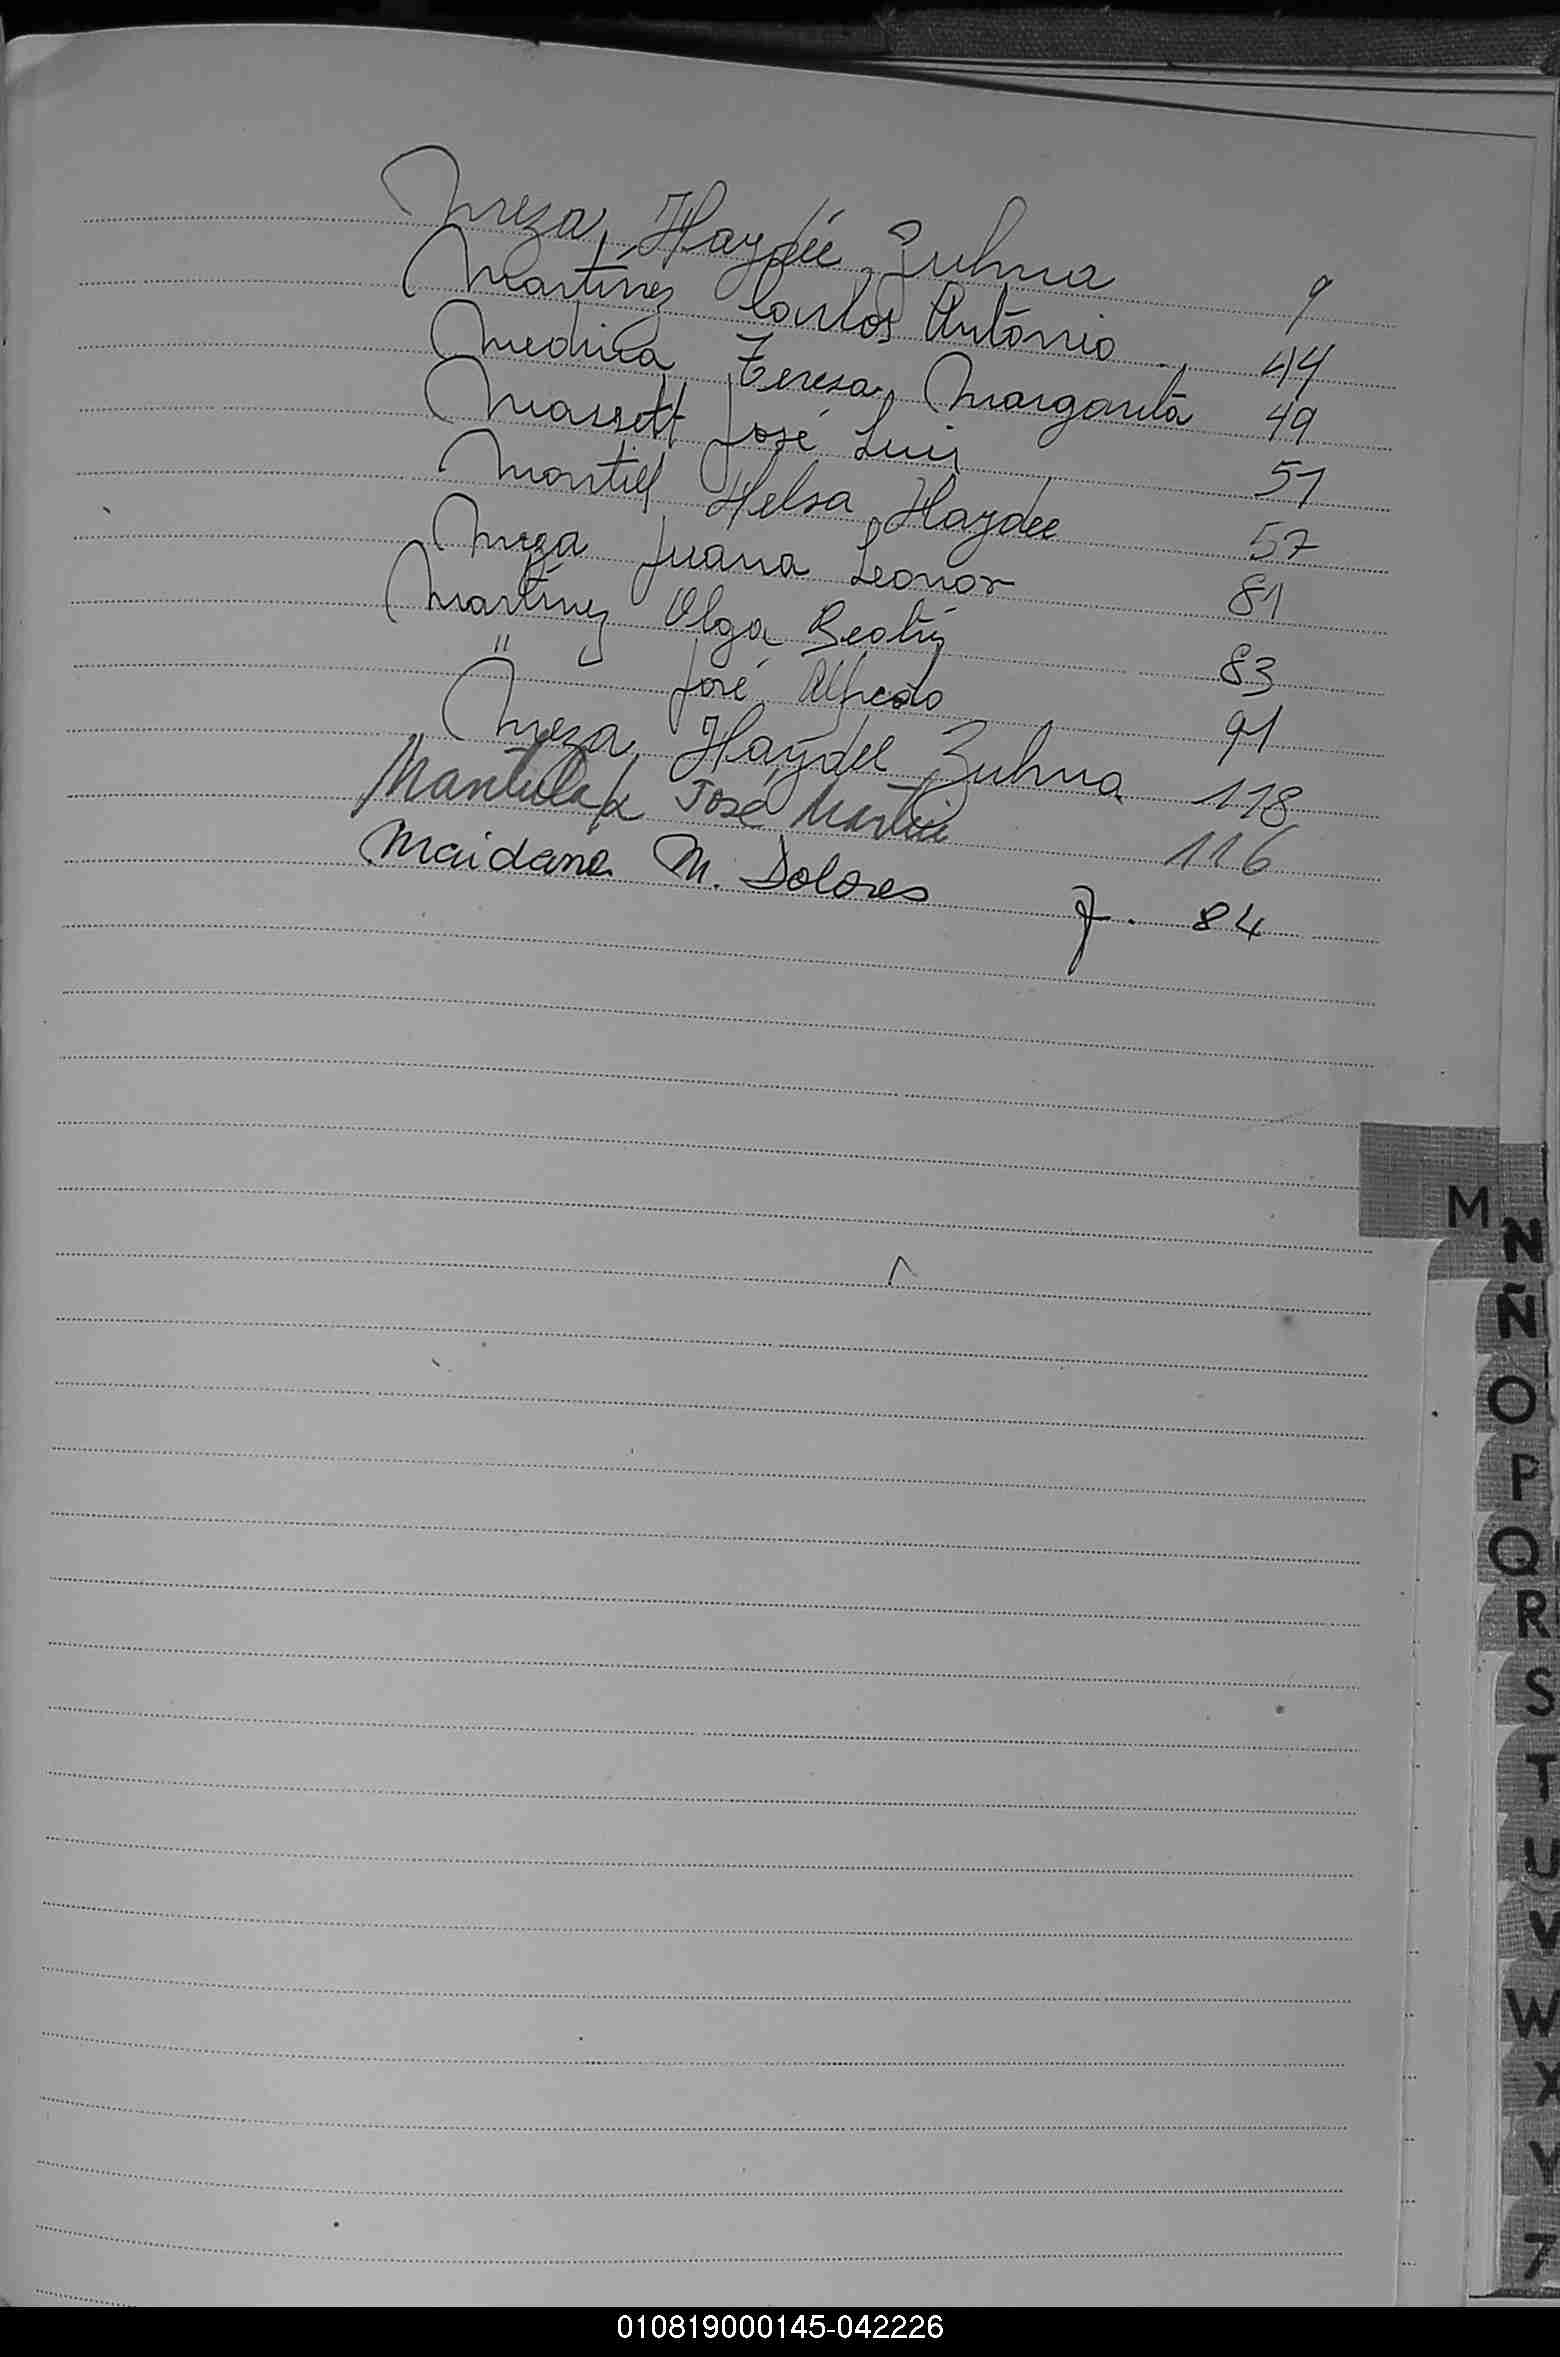 Meza, Haydée Zulma 9
Martínez Carlos Antonio 44
Medina Teresa Margarita 49
Massott José Luis 51
Montiel Helsa Haydee 57
Meza Juana Leonor 81
Martínez Olga Beatríz 83
" José Alfredo 91
Meza, Haydeé Zulma 118
José Martin 116
Maidana M. Dolores f. 84
M
N
Ñ
O
P
Q
R
S
T
U
V
W
X
Y
Z
010819000145-042226